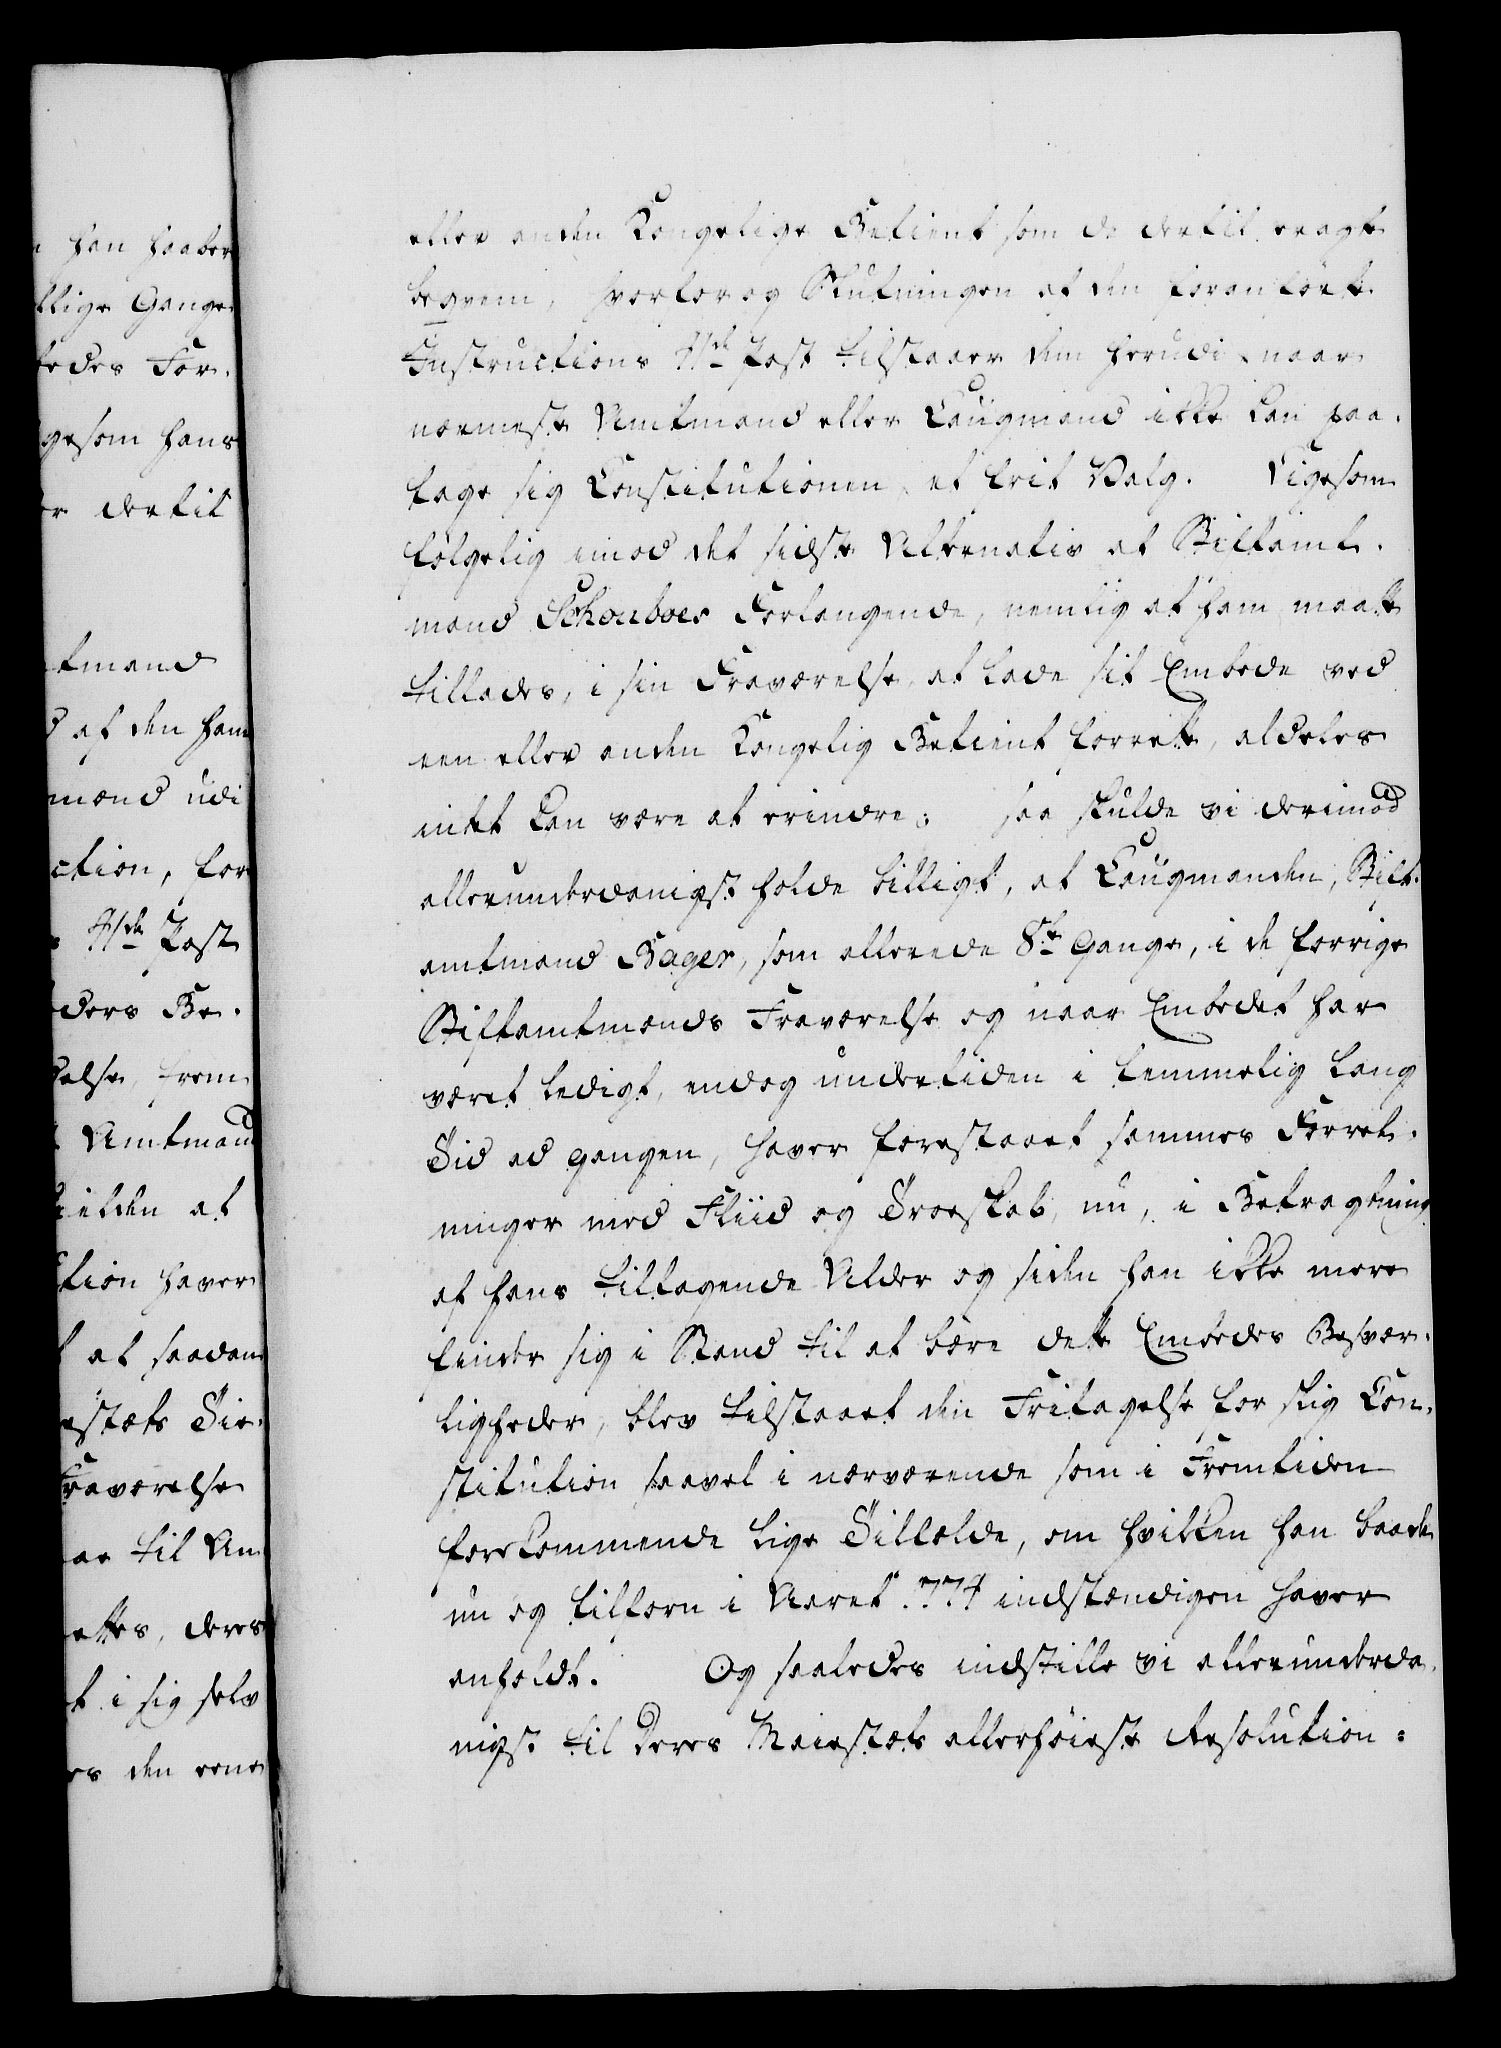 han haaber
llige Gange
bedes For-
gesom hans
er dertil
tmand
d af den ham
mænd udi
ction, for
41de Post
ders Be-
else, frem
Amtmand
ielden at
tion haver
t at saadan
estæts Tie-
Fraværelse
ar til An
ettes, deres
t i sig selv
es den eene
eller anden Kongelige Betient som de dertil eragte
beqvem, hvorfor og Slutningen af den foranførte
Instructions 41de Post tilstaaer dem herudi, naar
nærmeste Amtmand eller Laugmand ikke kan paa-
tage sig Constitutionen, et frit Valg. Ligesom
følgelig imod det sidste Alternativ af Stiftamt-
mand Schouboes Forlangende, nemlig at ham maatte
tillades, i sin Fraværelse, at lade sit Embede ved
een eller anden Kongelig Betient forrette, aldeles
intet kan være at erindre; saa skulde vi derimod
allerunderdanigst holde billigt, at Laugmanden, Stift-
amtmand Bager, som allerede 8te Gange, i de forrige
Stiftamtmænds Fraværelse og naar Embedet har
været ledigt, endog undertiden i temmelig lang
Tid ad gangen, haver forestaaet sammes Forret-
ninger med Fliid og Troeskab, nu, i Betragtning
af hans tiltagende Alder og siden han ikke mere
finder sig i Stand til at bære dette Embedes Besvær-
ligheder, blev tilstaaet den Fritagelse for slig Con-
stitution saavel i nærværende som i Fremtiden
forekommende lige Tilfælde, om hvilken han baade
nu og tilforn i Aaret 1774 indstændigen haver
anholdt. Og saaledes indstille vi allerunderda-
nigst til Deres Maiestæts allerhøieste Resolution: